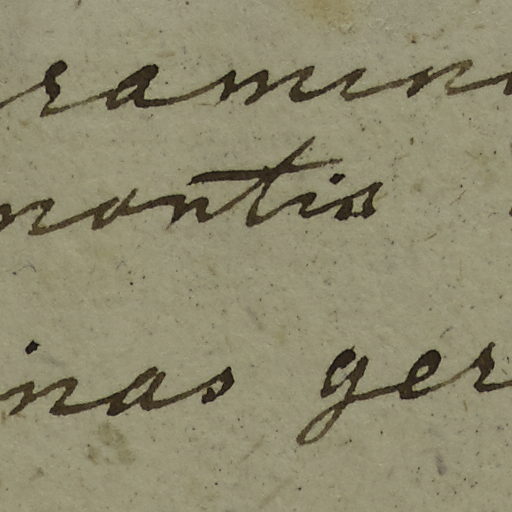 ramin
montis
inas ger